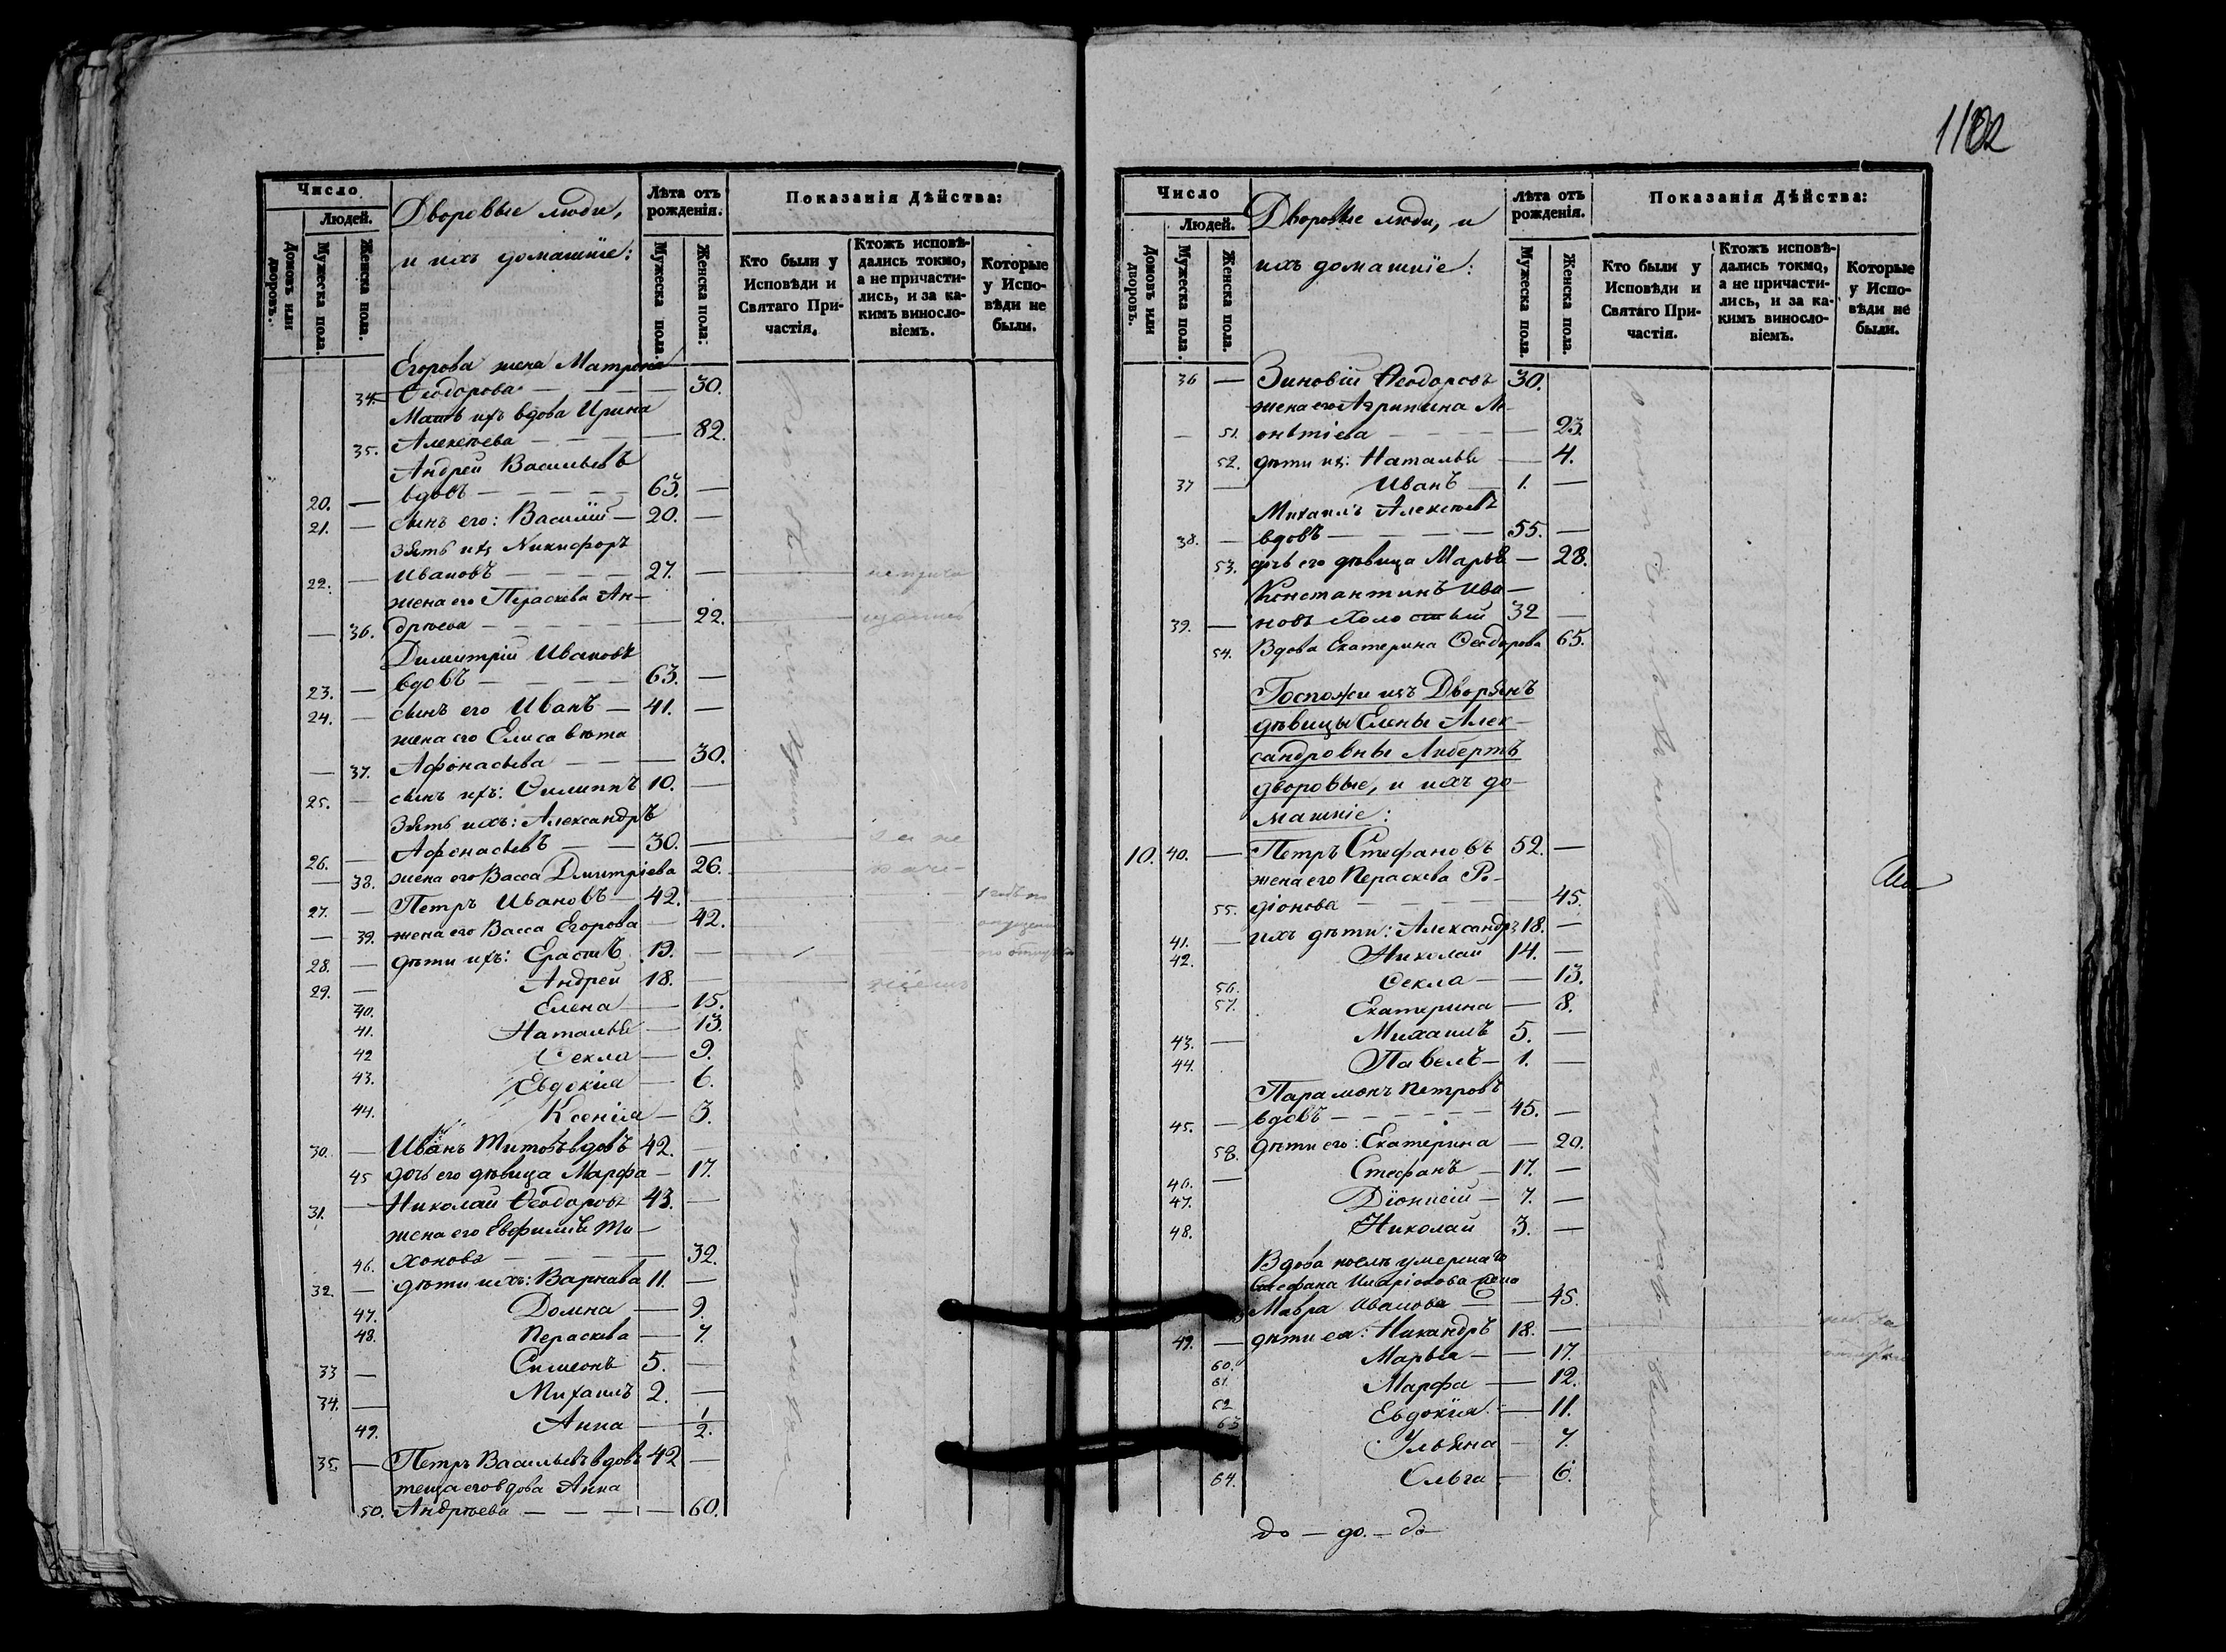 Число
Людей.
Домовъ или дворовъ.
Мужеска пола.
Женска пола.
Дворовые люди,
и ихъ домашніе:
Лѣта отъ рожденія.
Мужеска пола.
Женска пола.
Показанія Дѣйства:
Кто были у Исповѣди и Святаго Причастія.
Ктожъ исповѣдались токмо, а не причастились, и за какимъ винословіемъ.
Которые у Исповѣди не были.
Егорова жена Матрона
34. Ѳеодорова — 30.
Мать ихъ вдова Ирина
35. Алексѣева — 82.
Андрей Васильевъ
20. — вдовъ — 63. —
21. — сынъ его: Василій — 20. —
зять ихъ Никифоръ
22. — Ивановъ — 27. —
жена его Параскева Ан-
— 36. дрѣева — 22.
Димитрій Ивановъ
23. — вдовъ — 63. —
24. — сынъ его Иванъ — 41. —
жена его Елисавета
— 37. Афонасьева — 30.
25. — сынъ ихъ: Филиппъ 10. —
Зять ихъ: Александръ
26. — Афонасьевъ — 30. —
— 38. жена его Васса Димитріева 26.
27. — Петръ Ивановъ — 42. —
— 39. жена его Васса Егорова — 42.
28. — дѣти ихъ: Ерастъ 19. —
29. — Андрей 18. —
40. Елена — 15.
41. Наталья — 13.
42 Ѳекла — 9.
43. Евдокія — 6.
44. Ксенія — 3.
30. — Иванъ Титовъ вдовъ 42. —
45 дочь его дѣвица Марфа — 17.
31. — Николай Ѳеодоровъ 43. —
жена его Евфимія Ти-
46. хонова — 32.
32. — дѣти ихъ: Варнава 11. —
47. Домна — 9.
48. Параскева — 7.
33 — Симеонъ 5. —
34. — Михаилъ 2. —
49. Анна — 1/2.
35. — Петръ Васильевъ вдовъ 42 —
теща его вдова Анна
50. Андрѣева — 60.
Число
Людей.
Домовъ или дворовъ.
Мужеска пола.
Женска пола.
Дворовые люди, и
ихъ домашніе:
Лѣта отъ рожденія.
Мужеска пола.
Женска пола.
Показанія Дѣйства:
Кто были у Исповѣди и Святаго Причастія.
Ктожъ исповѣдались токмо, а не причастились, и за какимъ винословіемъ.
Которые у Исповѣди не были.
36 — Зиновій Ѳеодоровъ 30.
жена его Агрипина Ле-
— 51. онтіева — 23.
52. дѣти ихъ: Наталья — 4.
37 — Иванъ — 1. —
Михаилъ Алексѣевъ
38. — вдовъ — 55. —
53. дочь его дѣвица Марья — 28.
Константинъ Ива-
39. — новъ холостый 32 —
54. Вдова Екатерина Ѳеодорова 65.
Госпожи изъ Дворянъ
дѣвицы Елены Алек-
сандровны Либертъ
дворовые, и ихъ до-
машніе:
10. 40. — Петръ Стефановъ 52. —
жена его Параскева Ро-
55. діонова — 45.
41. — ихъ дѣти: Александръ 18. —
42. Николай 14. —
56. Ѳекла — 13.
57. Екатерина — 8.
43. — Михаилъ 5. —
44. Павелъ — 1. —
Парамонъ Петровъ
45. — вдовъ — 45. —
58. дѣти его: Екатерина — 20.
46. — Стефанъ — 17. —
47. Діонисій — 7. —
48. Николай 3. —
Вдова послѣ умершаго
Стефана Иларіонова жена
Мавра Иванова — 45.
49. — дѣти ея: Никандръ 18. —
60. Марья — 17.
61. Марфа — 12.
62 Евдокія — 11.
63 Ульяна — 7.
64. Ольга — 6.
до — до. — до